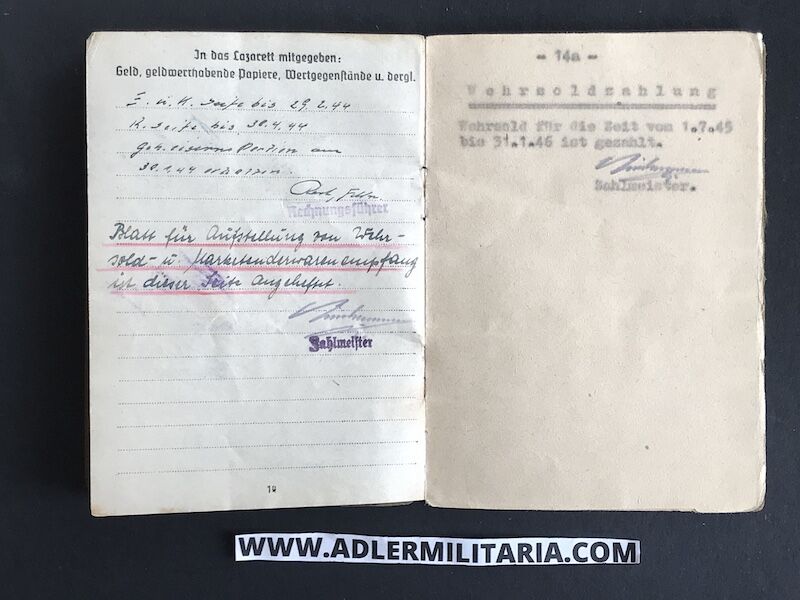 In das Lazarett mitgegeben:
Geld, geldwerthabende Papiere, Wertgegenstände u. dergl.
I. u. K. Seife bis 29.2.44
K. Seife bis 30.4.44
eiserne Portion am
30.1.44
Rechnungsführer
Blatt für Aufstellung von Wehr-
sold- u. Marketenderwarenempfang
ist dieser Seite angeheftet.
Zahlmeister
- 14a -
Wehrsoldzahlung
Wehrsold für die Zeit vom 1.7.45
bis 31.1.46 ist gezahlt.
Zahlmeister.
WWW.ADLERMILITARIA.COM